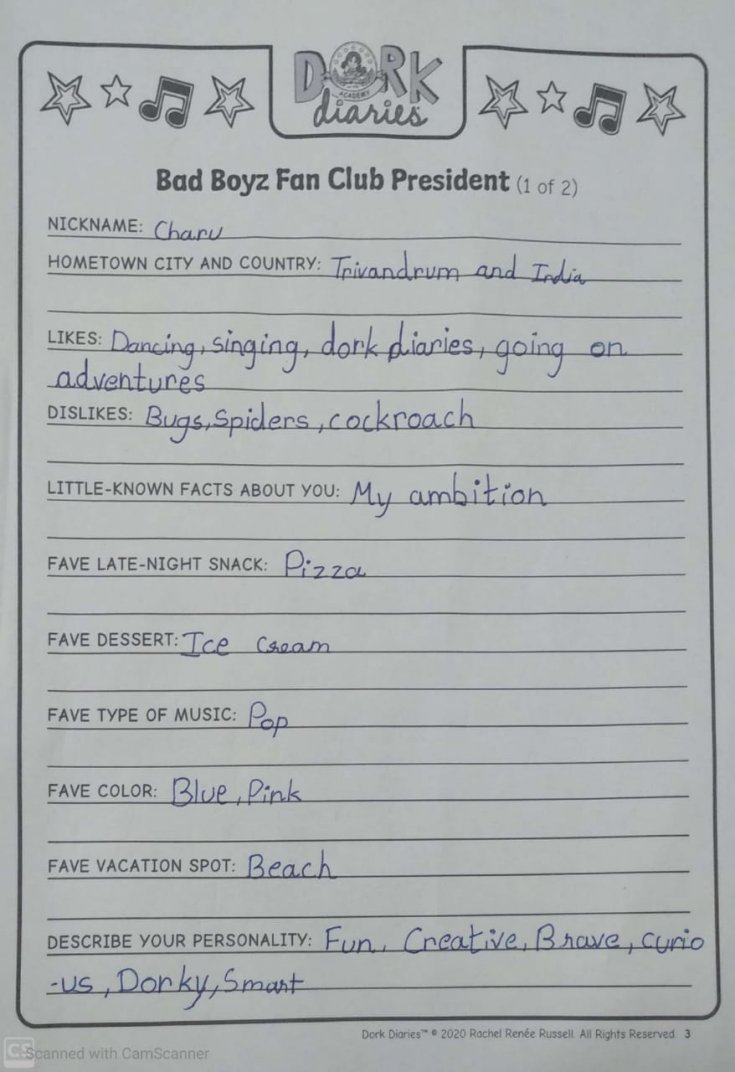 DORK
ACADEMY
diaries
Bad Boyz Fan Club President (1 of 2)
NICKNAME: Charu
HOMETOWN CITY AND COUNTRY: Trivandrum and India
LIKES: Dancing, singing, dork diaries, going on
adventures
DISLIKES: Bugs, Spiders, cockroach
LITTLE-KNOWN FACTS ABOUT YOU: My ambition
FAVE LATE-NIGHT SNACK: Pizza
FAVE DESSERT: Ice Cream
FAVE TYPE OF MUSIC: Pop
FAVE COLOR: Blue, Pink
FAVE VACATION SPOT: Beach
DESCRIBE YOUR PERSONALITY: Fun, Creative, Brave, curio
-us, Dorky, Smart
Dork Diaries™ © 2020 Rachel Renée Russell. All Rights Reserved. 3
CS Scanned with CamScanner